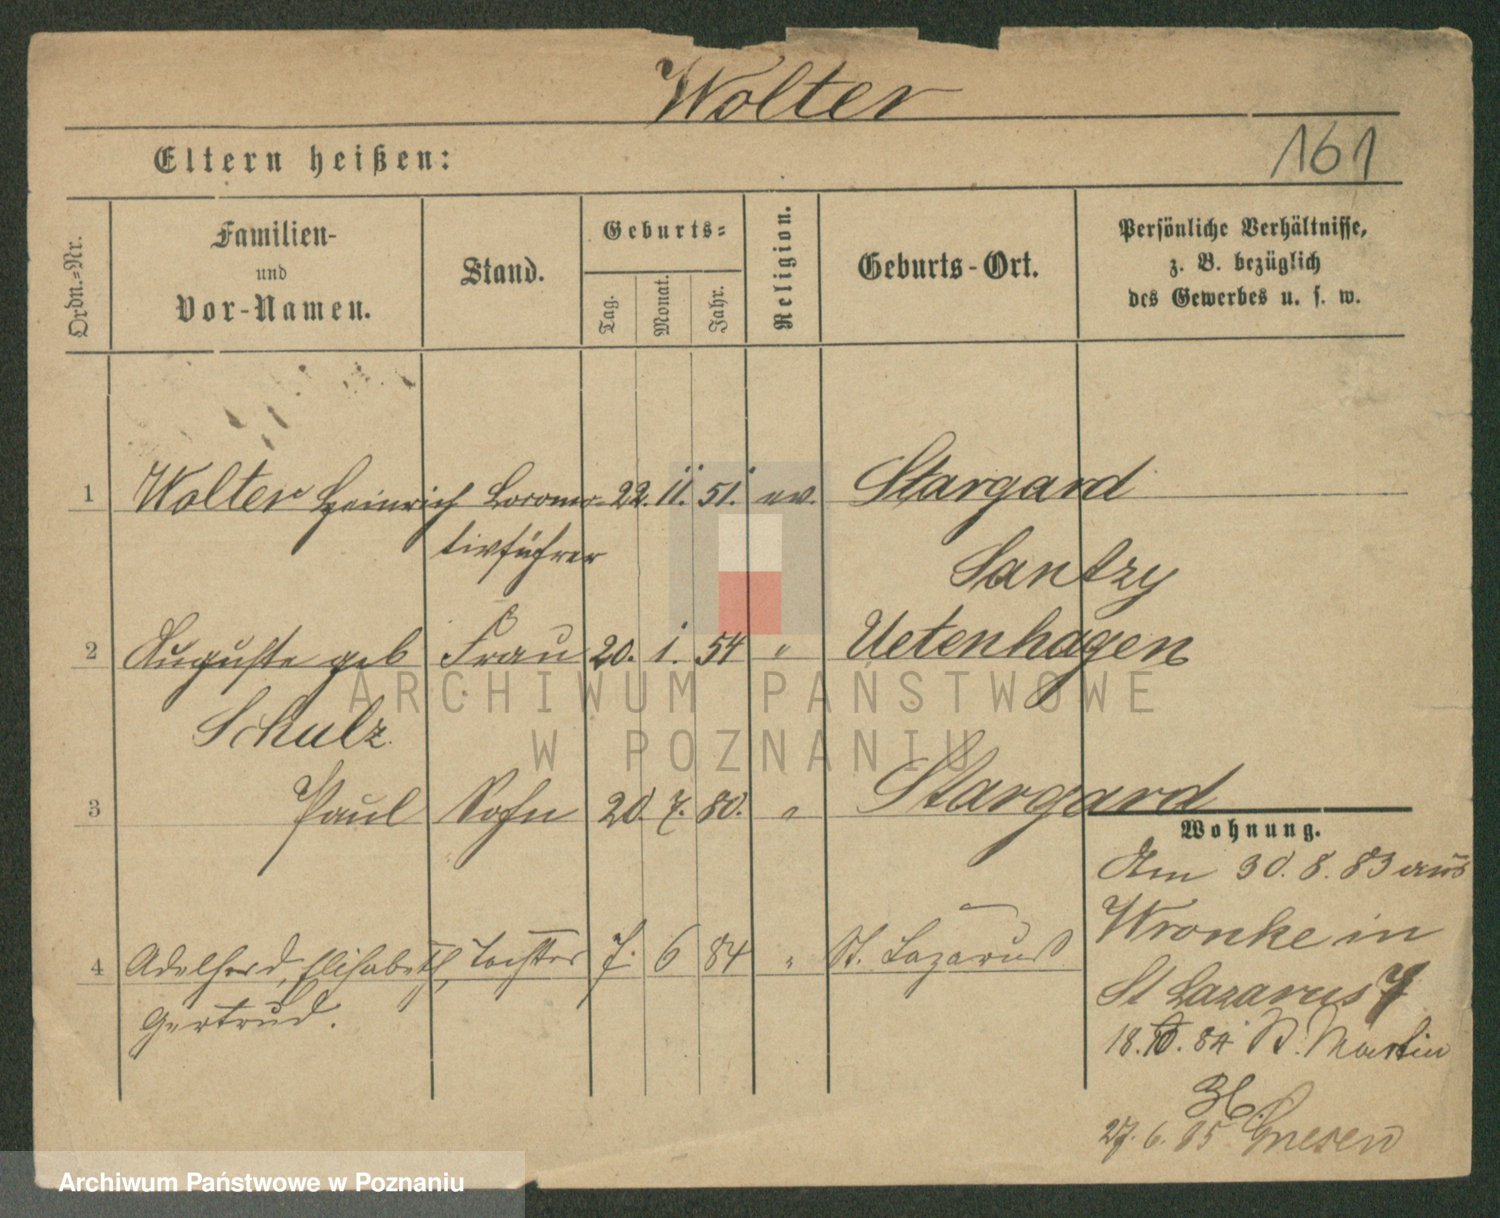 Wolter
161
Eltern heißen:
Ordn.-Nr.
Familien-
und
Vor-Namen.
Stand.
Geburts-
Tag.
Monat.
Jahr.
Religion.
Geburts-Ort.
Persönliche Verhältnisse,
z. B. bezüglich
des Gewerbes u. s. w.
1 Wolter Heinrich Locomo- 22. 11. 51. ev. Stargard
tivführer
Santzy
2 Auguste geb Frau 20. 1. 54 " Uetenhagen
Schulz
3 Paul Sohn 20. 7. 80. " Stargard
Wohnung.
Am 30. 8. 83 aus
Wronke in
St Lazarus 7
4 Adelheid, Elisabeth, Tochter 7. 6 84 " St. Lazarus
Gertrud.
18. 10. 84 St. Martin
36.
27. 6. 85 Gnesen
ARCHIWUM PAŃSTWOWE
W POZNANIU
Archiwum Państwowe w Poznaniu